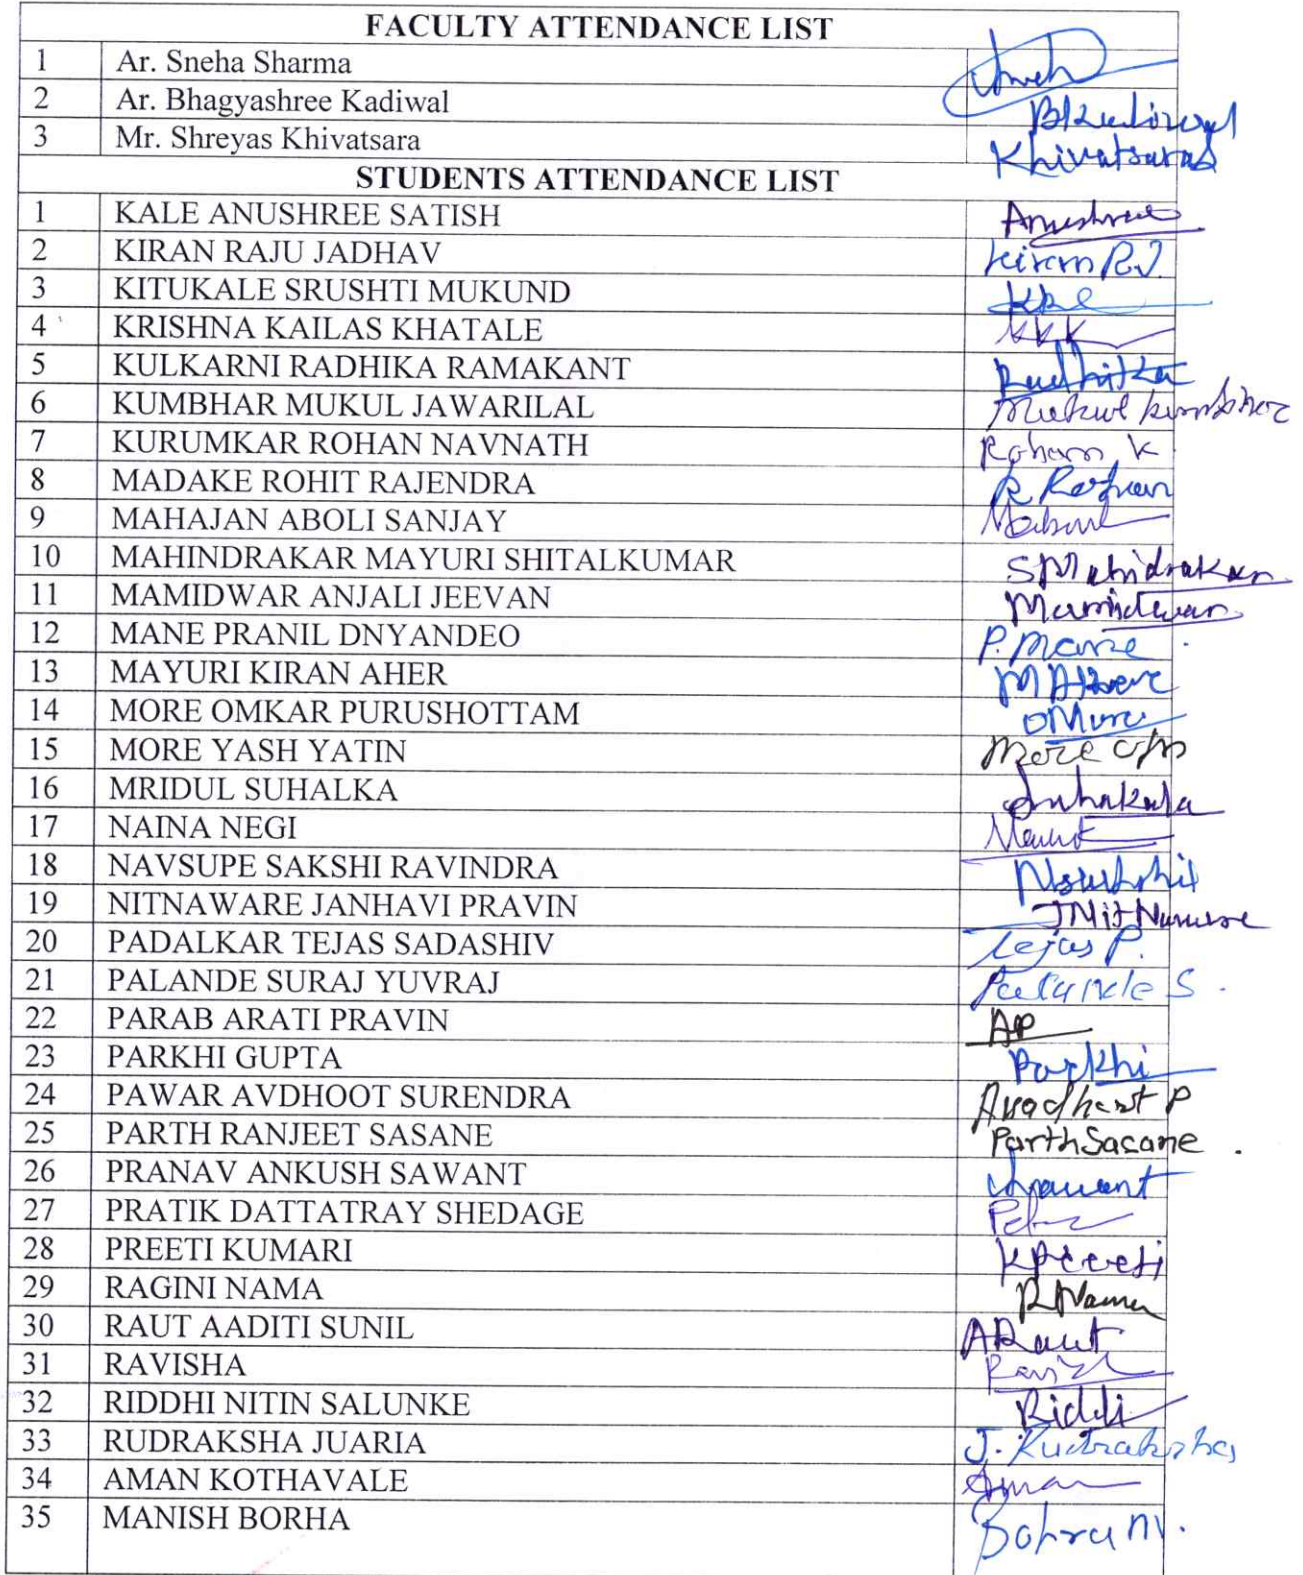 FACULTY ATTENDANCE LIST
1 Ar. Sneha Sharma
2 Ar. Bhagyashree Kadiwal
3 Mr. Shreyas Khivatsara Khivatsaras
STUDENTS ATTENDANCE LIST
1 KALE ANUSHREE SATISH Anushree
2 KIRAN RAJU JADHAV Kiran R.J.
3 KITUKALE SRUSHTI MUKUND
4 KRISHNA KAILAS KHATALE KKK
5 KULKARNI RADHIKA RAMAKANT Radhika
6 KUMBHAR MUKUL JAWARILAL Mukul Kumbhar
7 KURUMKAR ROHAN NAVNATH Rohan K
8 MADAKE ROHIT RAJENDRA
9 MAHAJAN ABOLI SANJAY
10 MAHINDRAKAR MAYURI SHITALKUMAR
11 MAMIDWAR ANJALI JEEVAN Mamidwar
12 MANE PRANIL DNYANDEO P. Mane
13 MAYURI KIRAN AHER M Aher
14 MORE OMKAR PURUSHOTTAM OMore
15 MORE YASH YATIN More
16 MRIDUL SUHALKA
17 NAINA NEGI
18 NAVSUPE SAKSHI RAVINDRA
19 NITNAWARE JANHAVI PRAVIN
20 PADALKAR TEJAS SADASHIV Tejas P.
21 PALANDE SURAJ YUVRAJ Palande S.
22 PARAB ARATI PRAVIN AP
23 PARKHI GUPTA Parkhi
24 PAWAR AVDHOOT SURENDRA
25 PARTH RANJEET SASANE Parth Sasane.
26 PRANAV ANKUSH SAWANT
27 PRATIK DATTATRAY SHEDAGE
28 PREETI KUMARI KPreeti
29 RAGINI NAMA R Nama
30 RAUT AADITI SUNIL ARaut
31 RAVISHA
32 RIDDHI NITIN SALUNKE Riddi
33 RUDRAKSHA JUARIA J. Rudraksha
34 AMAN KOTHAVALE Aman
35 MANISH BORHA Bohra M.